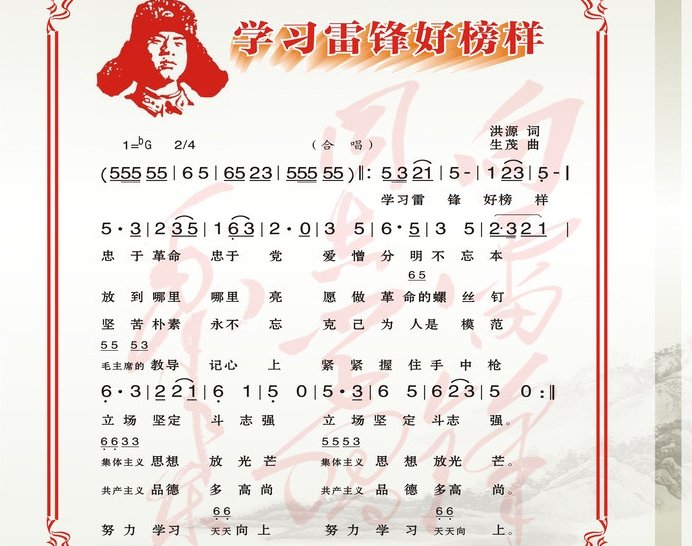 学习雷锋好榜样
1=♭G 2/4 （合唱）
洪源 词
生茂 曲
(555 55 | 65 | 65 23 | 555 55) ‖: 5 3 21 | 5 - | 1 23 | 5 - |
学习雷 锋 好榜 样
5·3 | 2 35 | 1 63 | 2·0 | 3 5 | 6·5 | 3 5 | 2·321 |
忠于革命 忠于党 爱憎分明不忘本
65
放到哪里 哪里亮 愿做革命的螺丝钉
坚苦朴素 永不忘 克己为人是模范
55 53
毛主席的教导 记心上 紧紧握住手中枪
6·3 | 2 21 | 6 1 | 5 0 | 5·3 | 6 5 | 6 23 | 5 0 :‖
立场坚定 斗志强 立场坚定斗志强。
6633 5553
集体主义思想 放光芒 集体主义思想放光芒。
共产主义品德 多高尚 共产主义品德多高尚。
66 66
努力学习 天天向上 努力学习天天向上。
向雷锋
同志